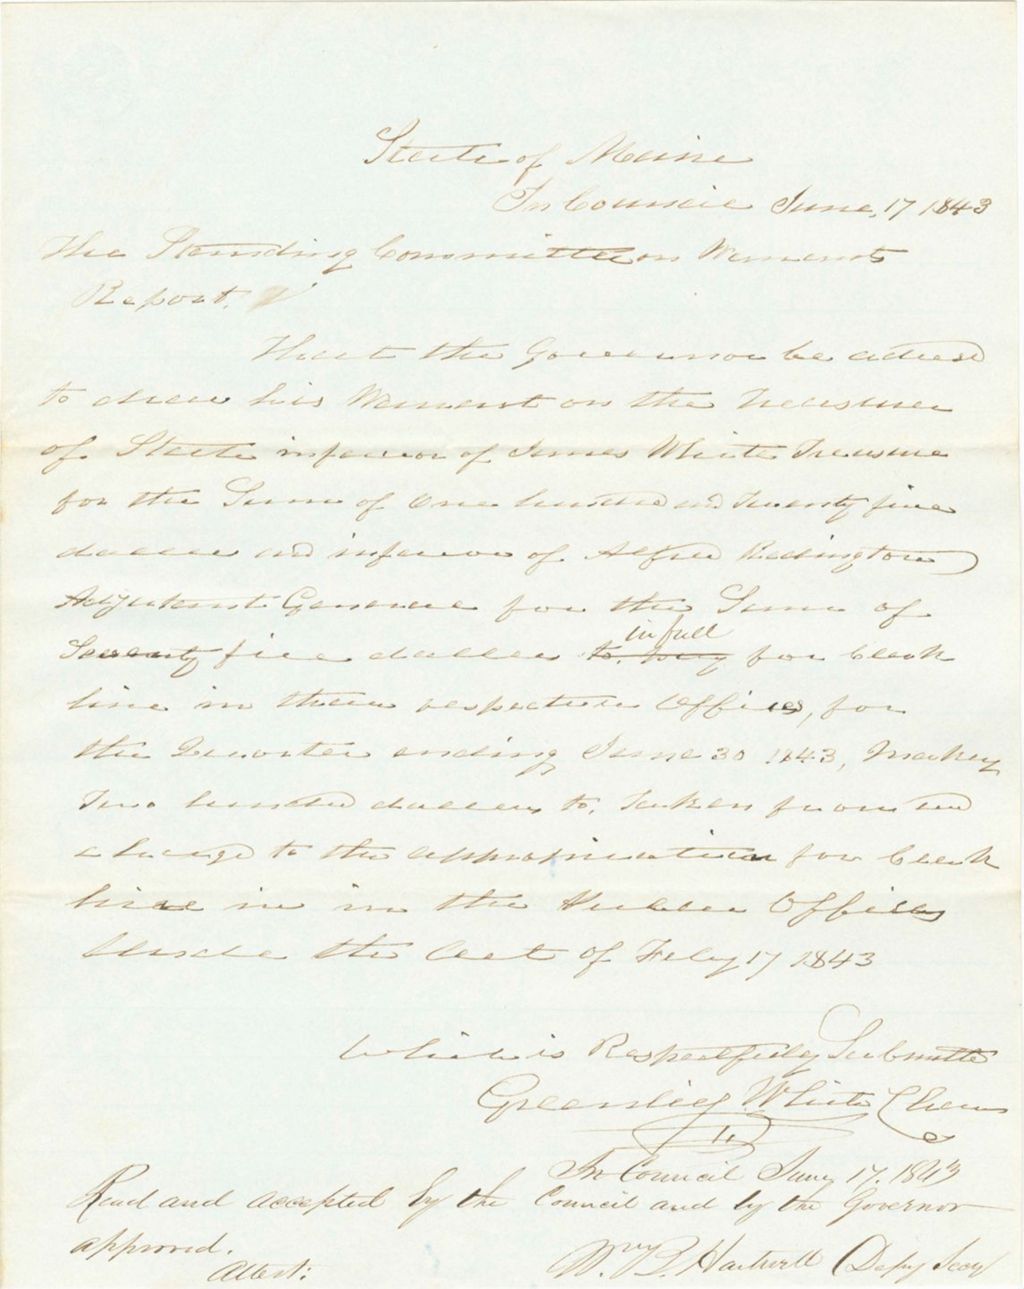 State of Maine
In Council June, 17 1843
The Standing Committee on Warrants
Report.
That the Governor be advised
to draw his Warrant on the Treasurer
of State in favor of James White Treasurer
for the Sum of One hundred and Twenty five
dollars and in favor of Alfred Redington
Adjutant General for the Sum of
in full
Seventy five dollars to. pay for Clerk
hire in their respective Offices, for
the Quarter ending June 30 1843, making
Two hundred dollars to, taken from and
charged to the appropriation for Clerk
hire in in the Public Offices
Under the Act of Feby 17 1843
Which is Respectfully Submitted
Greenlief White Chair
In Council June 17. 1843
Read and accepted by the Council and by the Governor
approved.
Attest:
Wm B. Hartwell Depy Secy